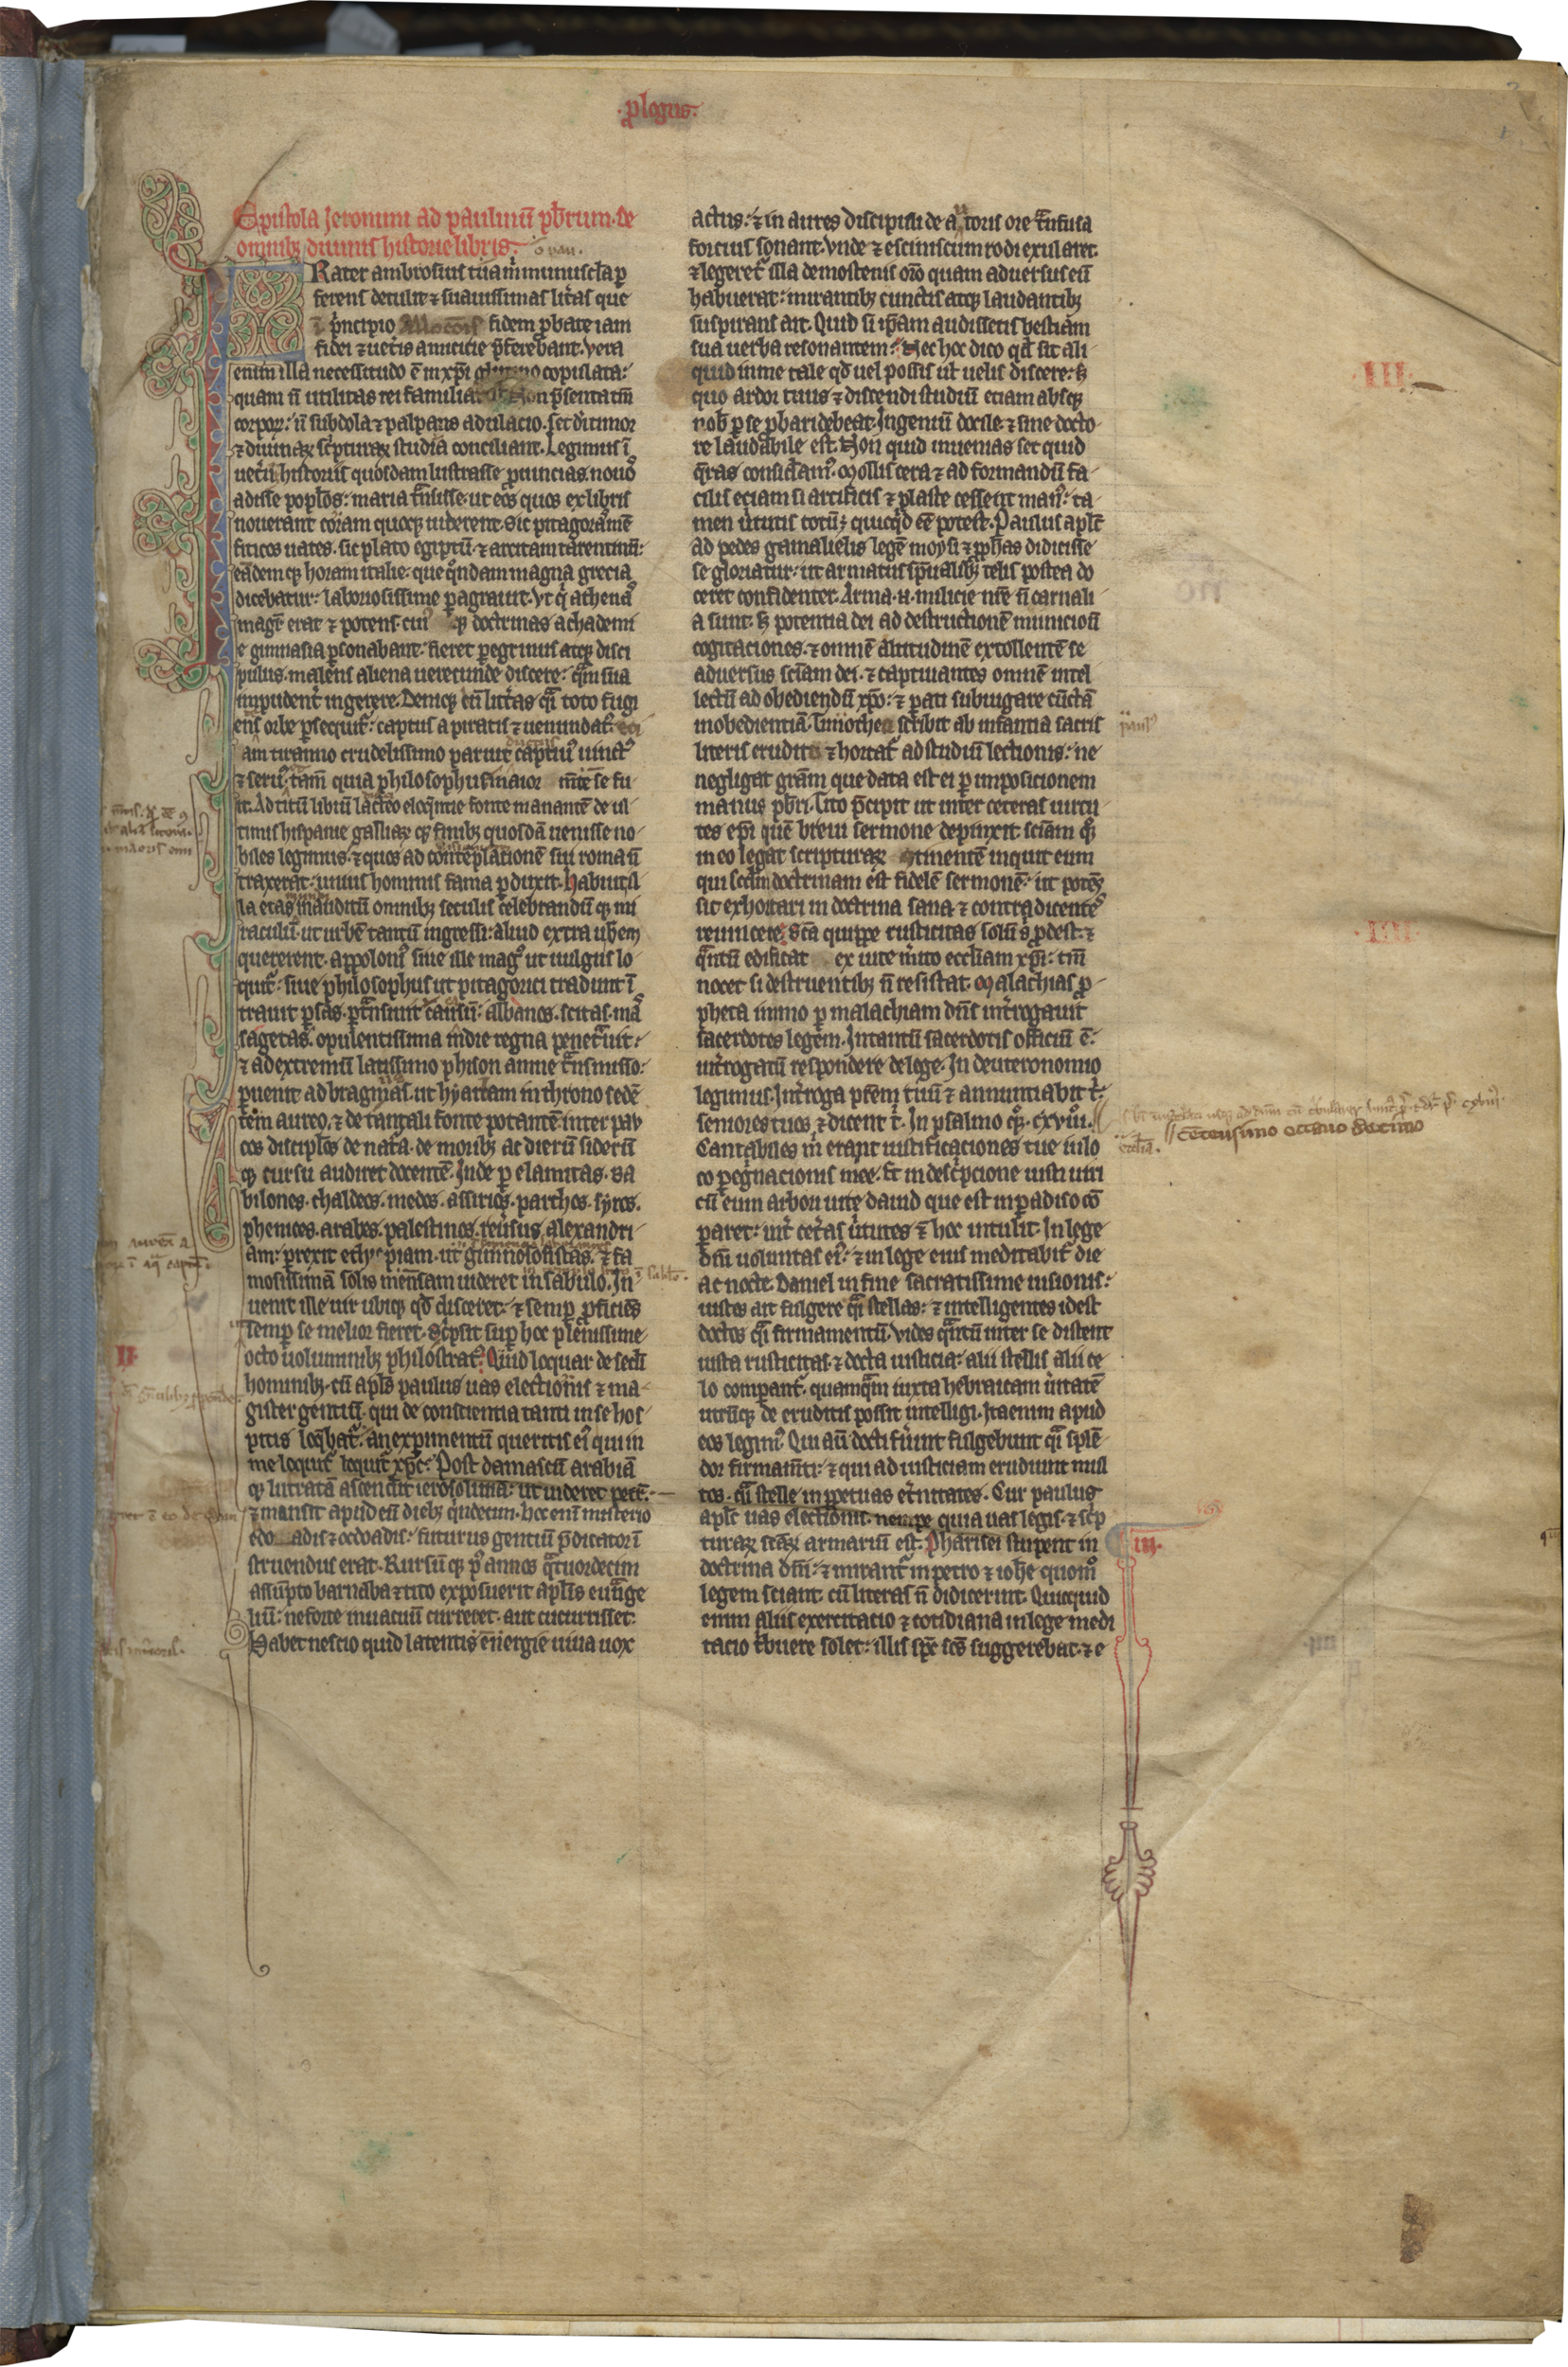 ·p̄logus·
Epistola Jeronimi ad paulinū pb̄rum· de
omnibꝫ diuinis historie libris·
Frater ambrosius tua m̄ munuscl̄a ꝑ
ferens detulit ⁊ suauissimas litt̄as que
ī p̄ncipio fidem ꝓbate iam
fidei ⁊ uet̄is amicicie p̄ferebant· Vera
enim illa necessitudo ē ⁊ xp̄i copulata:
quam n̄ utilitas rei familiaris non p̄sentia tm̄
corpoꝝ: n̄ subdola ⁊ palpans adulacio· set dī timor
⁊ diuinaꝝ sc̄pturaꝝ studia conciliant· Legimus ī
uet̄ibꝫ historiis quosdam lustrasse ꝓuincias· nouos
adisse pop̄los: maria t̄nsisse· ut eos quos ex libris
nouerant coram quoqꝫ uiderent· Sic pitagoras mē
fiticos uates· sic plato egiptū· ⁊ arcitam tarentinū:
eādemqꝫ horam italie· que q̄ndam magna grecia
dicebatur: laboriosissime ꝑagrauit· Vt q̄ athenis
maḡr erat ⁊ potens· cuiꝰ qꝫ doctrinas achademi
e gimnasia ꝑsonabant· fieret ꝑegrinus atqꝫ disci
pulus· malens aliena uerecunde discere: q̄m sua
impudent̄ ingerere· Deniqꝫ cū litt̄as q̄i toto fugi
ens orbe ꝑsequit̄: captus a piratis ⁊ uenundatꝰ· eci
am tiranno crudelissimo paruit captiuꝰ uinctꝰ
⁊ seruꝰ· tam̄ quia philosophus maior em̄te se fu
it· Ad titū libiū lacteo eloq̄ntie fonte manantē de ul
timis hispanie galliaꝝqꝫ finibꝫ quosdā uenisse no
biles legimus· ⁊ quos ad contēplationē sui roma n̄
traxerat: unius hominis fama ꝑduxit· Habuit il
la etas inauditū omnibꝫ seculis celebrandūqꝫ mi
raculū· ut urbē tantū ingressi: aliud extra urbem
quererent· Appoloniꝰ siue ille magꝰ ut uulgus lo
quit̄: siue philosophus ut pitagorici tradunt ī
trauit ꝑsas· ꝑt̄nsiuit caucasū: albanos· scitas· mas
sagetas· opulentissima indie regna penet̄uit:
⁊ ad extremū latissimo phison amne t̄nsmisso:
ꝑuenit ad bragmas· ut hyarcam in throno sedē
tem aureo· ⁊ de tantali fonte potantē inter pau
cos discip̄los de nat̄a· de moribꝫ ac dierū siderū
qꝫ cursu audiret docentē· Inde ꝑ elamitas· ba
bilones· chaldeos· medos· assirios· parthos· syros·
phenices· arabes· palestinos· reuersus alexandri
am: ꝑrexit ethyopiam· ut gimnosofistas· ⁊ fa
mosissimā solis mensam uideret in sabulo· In
uenit ille uir ubiqꝫ qd̄ disceret: ⁊ semꝑ ꝓficiēs
semꝑ se melior fieret· Sc̄psit suꝑ hoc plenissime
octo uoluminibꝫ philostratꝰ· Quid loquar de secl̄i
hominibꝫ· cū apl̄s paulus uas electionis ⁊ ma
gister gentiū· qui de conscientia tanti in se hos
pitis loq̄batꝰ: an expimentū queritis eiꝰ qui in
me loquit̄ xp̄c: Post damascū arabiā
qꝫ lustratā ascendit ierosolimā: ut uideret petrū·
⁊ mansit apud eū diebꝫ q̄ndecim· hoc enī misterio
ebdoadis ⁊ ocdoadis: futurus gentiū p̄dicator ī
struendus erat· Rursūqꝫ pꝰ annos q̄tuordecim
assūpto barnaba ⁊ tito exposuerit apl̄is euāge
liū: ne forte in uacuū curreret· aut cucurrisset·
Habet nescio quid latentis energie uiua uox
actus: ⁊ in aures discipuli de auctoris ore t̄nsfusa
forcius sonant· Vnde ⁊ eschines cum rodi exularet·
⁊ legeret̄ illa demostenis or̄o quam aduersus eū
habuerat: mirantibꝫ cunctis atqꝫ laudantibꝫ
suspirans ait· Quid si ip̄am audissetis bestiam
sua uerba resonantem: Nec hoc dico qd̄ sit ali
quid in me tale qd̄ uel possis ul̄ uelis discere: sꝫ
quo ardor tuus ⁊ discendi studiū eciam absqꝫ
nob̄ ꝑ se ꝓbari debeat· Ingeniū docile ⁊ sine docto
re laudabile est· Non quid inuenias set quid
q̄ras considamꝰ· Mollis cera ⁊ ad formandū fa
cilis eciam si artificis ⁊ plaste cessent manꝰ: ta
men ūtutis totū ē quicq̄d eē potest· Paulus apl̄c
ad pedes gamalielis legē moysi ⁊ ꝓph̄as didicisse
se gloriatur: ut armatus sp̄ualibꝫ telis postea do
ceret confidenter· Arma n̄ milicie nr̄e n̄ carnali
a sunt· sꝫ potentia dei ad destructionē municionū
cogitaciones· ⁊ omnē altitudinē extollentē se
aduersus sciam dei· ⁊ captiuantes omnē intel
lectū ad obediendū xp̄o: ⁊ pati subiugare cūctā
inobedientiā· Timotheo scribit ab infantia sacris
literis erudito ⁊ hortat̄ ad studiū lectionis: ne
negligat grām que data est ei ꝑ imposicionem
manus pb̄ri· Tito p̄cipit ut inter ceteras uirtu
tes ep̄i quē breui sermone depinxit· sciam qꝫ
in eo legat scripturaꝝ tinentē inquit eum
qui secd̄m doctrinam est fidelē sermonē· ut potens
sit exhortari in doctrina sana ⁊ contradicentes
reuincere· Sc̄a quippe rusticitas solū s̄ ꝓdest· ⁊
q̄ntū edificat ex uite m̄ito eccliam xp̄i: tm̄
nocet si destruentibꝫ n̄ resistat· Malachias ꝓ
pheta immo ꝑ malachiam dn̄s int̄rogauit
sacerdotes legem· Intantū sacerdotis officiū ē:
int̄rogatū respondere de lege· In deuteronomio
legimus· Int̄roga prēm tuū ⁊ annuntiabit t̄·
seniores tuos ⁊ dicent t̄· In psalmo qꝫ cxviii·
// cētensimo octauo decimo
Cantabiles m̄ erant iustificaciones tue in lo
co ꝑeḡnacionis mee· Et in desc̄pcione iusti uiri
cū eum arbori uite dauid que est in ꝑadiso cō
paret: int̄ cet̄as ūtutes ⁊ hoc intulit· In lege
dn̄i uoluntas eiꝰ: ⁊ in lege eius meditabit̄ die
ac nocte· Daniel in fine sacratissime uisionis:
iustos ait fulgere q̄i stellas: ⁊ intelligentes idest
doctos q̄i firmamentū· Vides q̄ntū inter se distent
iusta rusticitas· ⁊ docta iusticia: alii stellis alii ce
lo compant̄· quamq̄m iuxta hebraicam ūitatē
utrūqꝫ de eruditis possit intelligi· Ita enim apud
eos legimꝰ· Qui aū docti fūint fulgebunt q̄i splē
dor firmam̄ti: ⁊ qui ad iusticiam erudiunt mul
tos· q̄i stelle in ꝑpetuas et̄nitates· Cur paulus
apl̄c uas electionis· nempe quia uas legis· ⁊ sc̄p
turaꝝ sc̄aꝝ armariū est· Pharisei stupent in
·iii·
doctrina dn̄i: ⁊ mirant̄ in petro ⁊ ioh̄e quomꝰ
legem sciant· cū literas n̄ didicerint· Quicquid
enim aliis exercitacio ⁊ cotidiana in lege medi
tacio t̄buere solet: illis sp̄c sc̄s suggerebat· ⁊ e